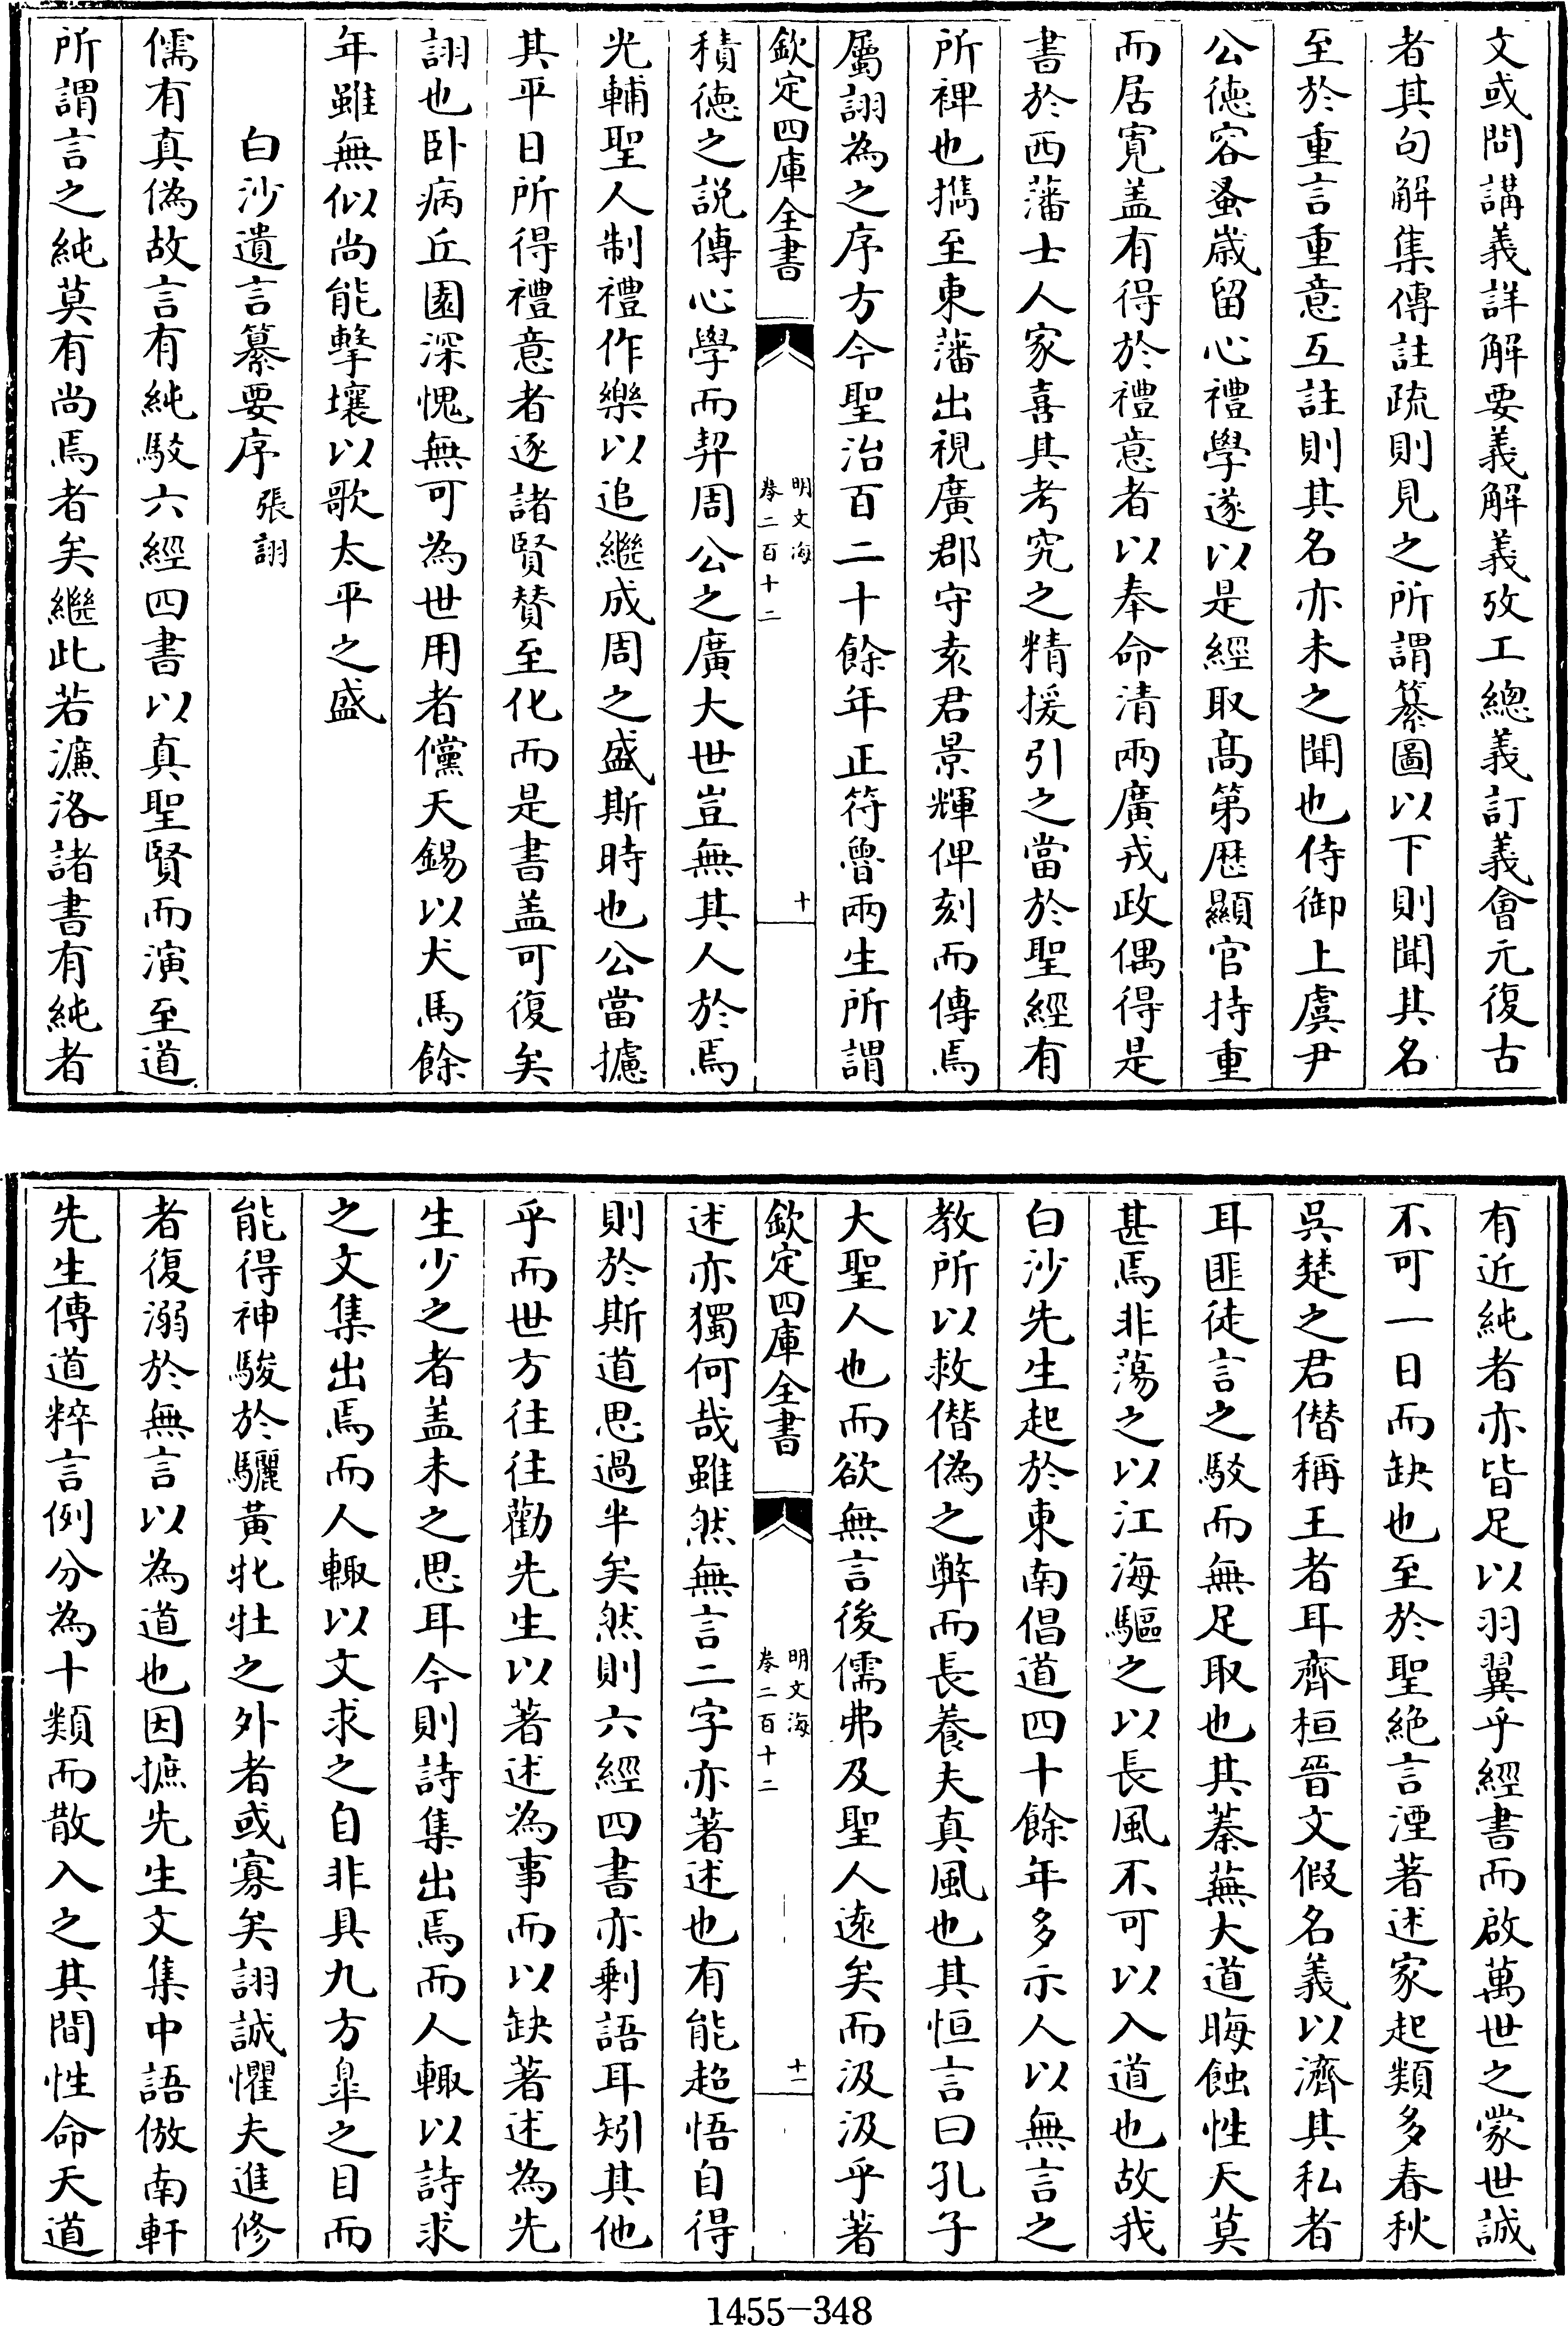 文或問講義詳解要義解義攷工總義訂義會元復古
者其句解集傳註疏則見之所謂纂圖以下則聞其名
至於重言重意互註則其名亦未之聞也侍御上虞尹
公德容蚤歲留心禮學遂以是經取髙第歴顯官持重
而居寛盖有得於禮意者以奉命清兩廣戎政偶得是
書於西藩士人家喜其考究之精援引之當於聖經有
所裨也携至東藩出視廣郡守袁君景輝俾刻而傳焉
屬詡為之序方今聖治百二十餘年正符魯兩生所謂
欽定四庫全書
明文海
卷二百十二
十
積徳之説傳心學而契周公之廣大世豈無其人於焉
光輔聖人制禮作樂以追繼成周之盛斯時也公當攄
其平日所得禮意者逐諸賢賛至化而是書盖可復矣
詡也卧病丘園深愧無可為世用者儻天錫以犬馬餘
年雖無似尚能擊壤以歌太平之盛
白沙遺言纂要序 張詡
儒有真偽故言有純駁六經四書以真聖賢而演至道
所謂言之純莫有尚焉者矣繼此若濂洛諸書有純者
有近純者亦皆足以羽翼乎經書而啟萬世之蒙世誠
不可一日而缺也至於聖絶言湮著述家起類多春秋
吳楚之君僭稱王者耳齊桓晉文假名義以濟其私者
耳匪徒言之駁而無足取也其蓁蕪大道晦蝕性天莫
甚焉非蕩之以江海驅之以長風不可以入道也故我
白沙先生起於東南倡道四十餘年多示人以無言之
教所以救僭偽之弊而長養夫真風也其恒言曰孔子
大聖人也而欲無言後儒弗及聖人逺矣而汲汲乎著
欽定四庫全書
明文海
卷二百十二
十一
述亦獨何哉雖然無言二字亦著述也有能超悟自得
則於斯道思過半矣然則六經四書亦剩語耳矧其他
乎而世方往往勸先生以著述為事而以缺著述為先
生少之者盖未之思耳今則詩集出焉而人輙以詩求
之文集出焉而人輙以文求之自非具九方臯之目而
能得神駿於驪黄牝牡之外者或寡矣詡誠懼夫進修
者復溺於無言以為道也因摭先生文集中語倣南軒
先生傳道粹言例分為十類而散入之其間性命天道
1455—348